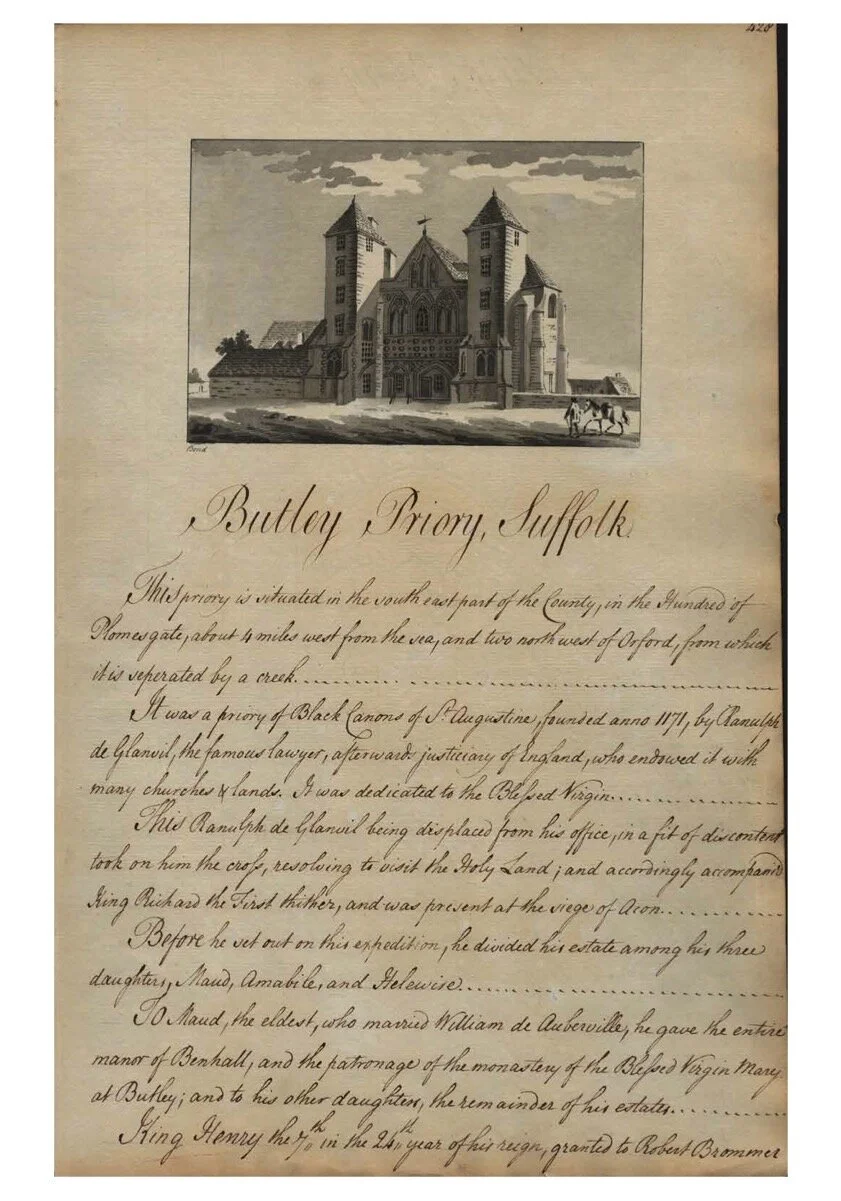 428
Bond
Butley Priory, Suffolk.
This priory is situated in the south east part of the County, in the Hundred of
Plomesgate, about 4 miles west from the sea, and two north west of Orford, from which
it is seperated by a creek.
It was a priory of Black Canons of St. Augustine, founded anno 1171, by Ranulph
de Glanvil, the famous lawyer, afterwards justiciary of England, who endowed it with
many churches & lands. It was dedicated to the Blessed Virgin.
This Ranulph de Glanvil being displaced from his office, in a fit of discontent
took on him the cross, resolving to visit the Holy Land; and accordingly accompanied
King Richard the First thither, and was present at the siege of Acon.
Before he set out on this expedition, he divided his estate among his three
daughters, Maud, Amabile, and Helewise.
To Maud, the eldest, who married William de Auberville, he gave the entire
manor of Benhall, and the patronage of the monastery of the Blessed Virgin Mary
at Butley; and to his other daughters, the remainder of his estates.
King Henry the 7th in the 24th year of his reign, granted to Robert Brommer